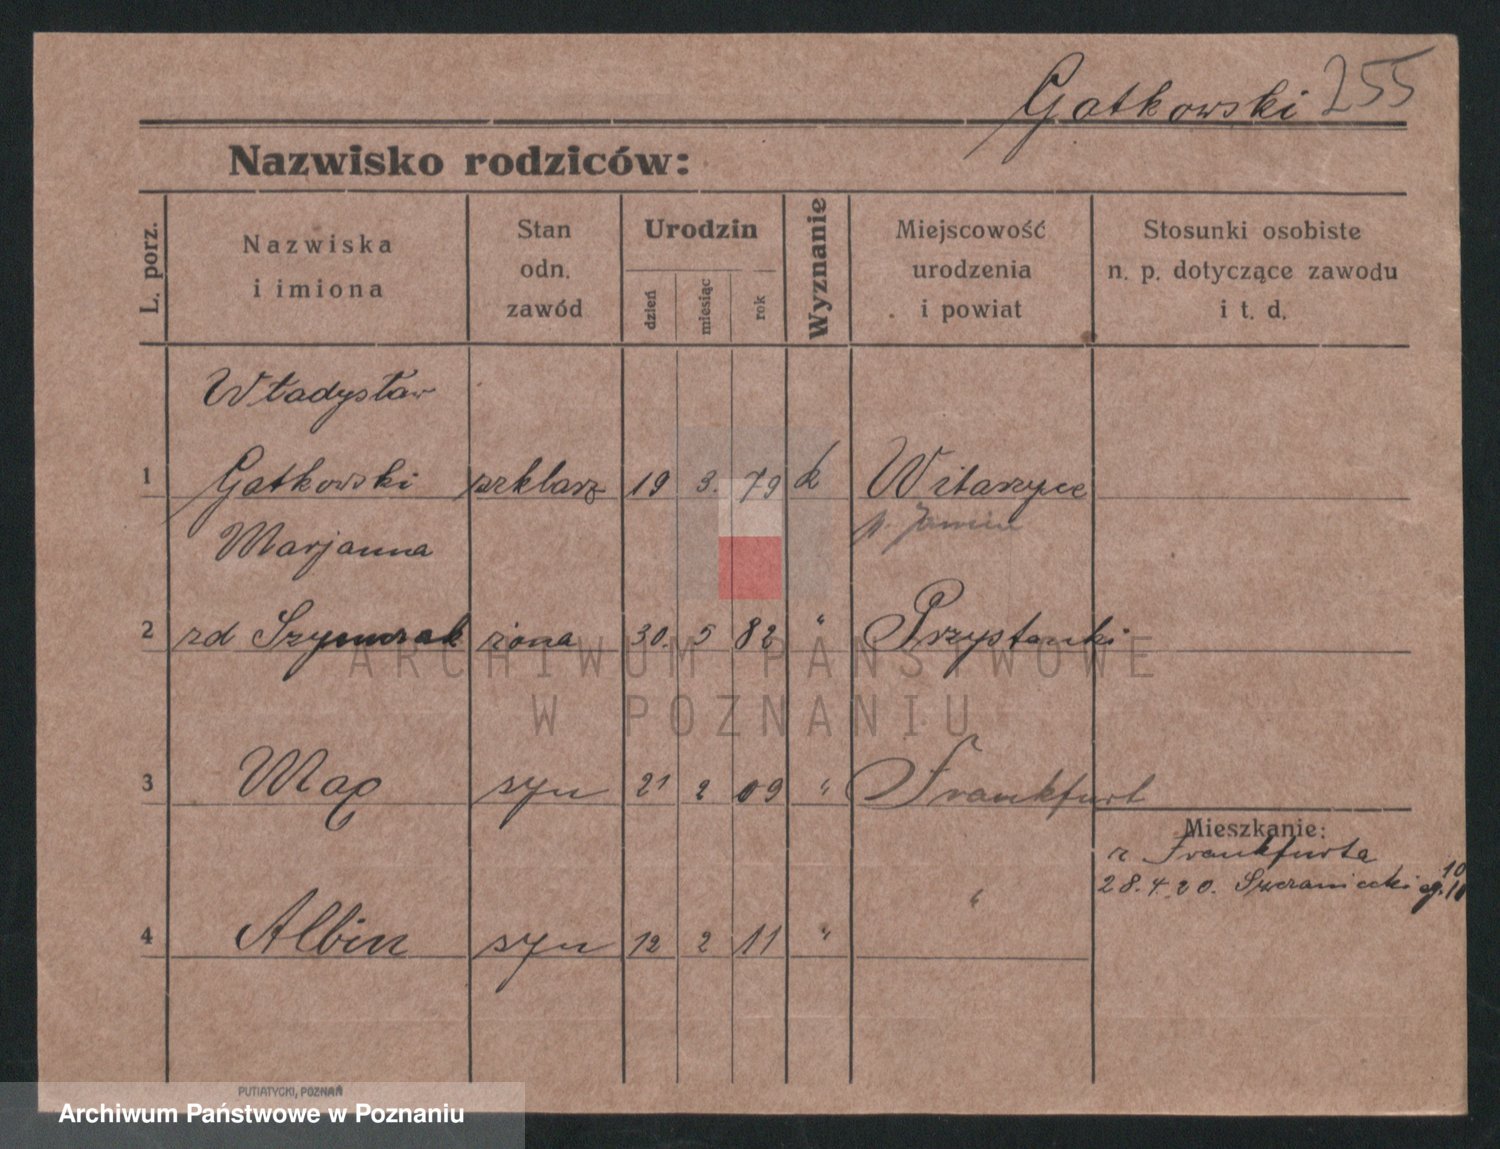 Gatkowski 255
Nazwisko rodziców:
L. porz.
Nazwiska
i imiona
Stan
odn.
zawód
Urodzin
dzień
miesiąc
rok
Wyznanie
Miejscowość
urodzenia
i powiat
Stosunki osobiste
n. p. dotyczące zawodu
i t. d.
Władysław
1 Gatkowski szklarz 19 3. 79 k Witaszyce
p.
Marjanna
2 zd Szymczak żona 30. 5 82 " Przystanki
ARCHIWUM PAŃSTWOWE
W POZNANIU
3 Max syn 21 2 09 " Frankfurt
Mieszkanie:
z Frankfurta
28.4.20.
4 Albin syn 12 2 11 " "
PUTIATYCKI, POZNAŃ
Archiwum Państwowe w Poznaniu